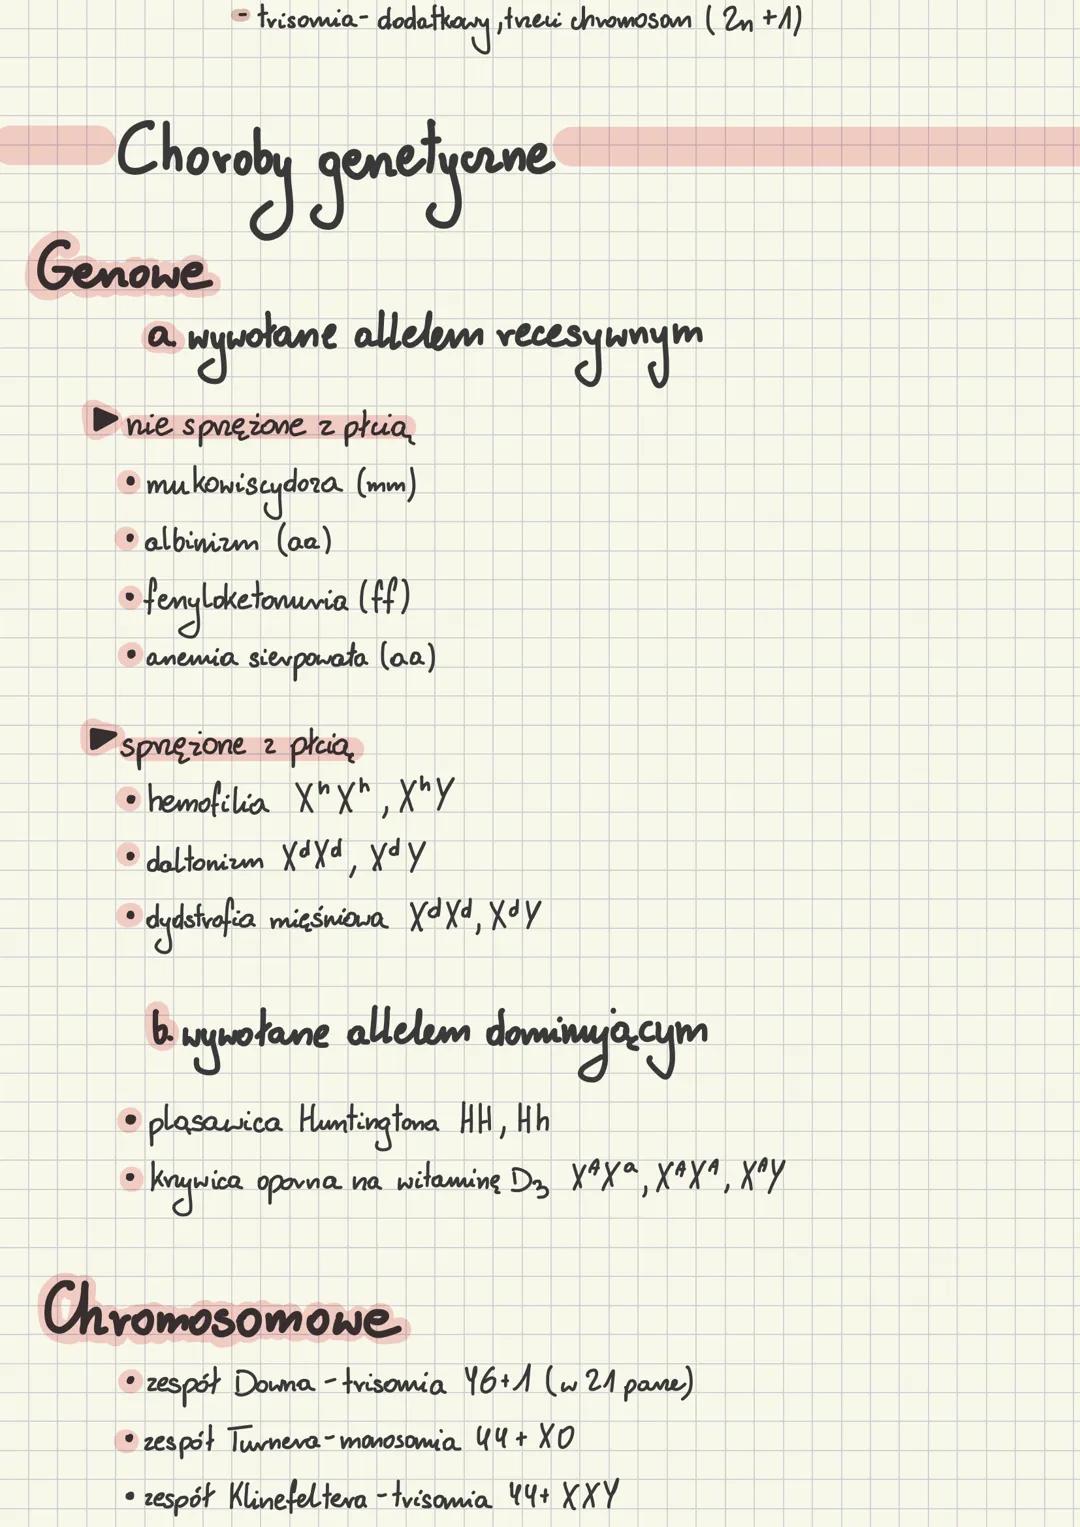 - trisomia- dodatkowy, trzeci chromosom (2n +1)
Choroby genetyczne
Genowe
a. wywołane allelem recesywnym
▶ nie sprzężone z płcią
• mukowiscydoza (mm)
• albinizm (aa)
• fenyloketonuria (ff)
• anemia sierpowata (aa)
▶ sprzężone z płcią
• hemofilia XʰXʰ, XʰY
• daltonizm XᵈXᵈ, XᵈY
• dydstrofia mięśniowa XᵈXᵈ, XᵈY
b. wywołane allelem dominującym
• pląsawica Huntingtona HH, Hh
• krzywica oporna na witaminę D₃ XᴬXᵃ, XᴬXᴬ, XᴬY
Chromosomowe
• zespół Downa - trisomia 46+1 (w 21 parze)
• zespół Turnera - monosomia 44 + X0
• zespół Klinefeltera - trisomia 44+ XXY